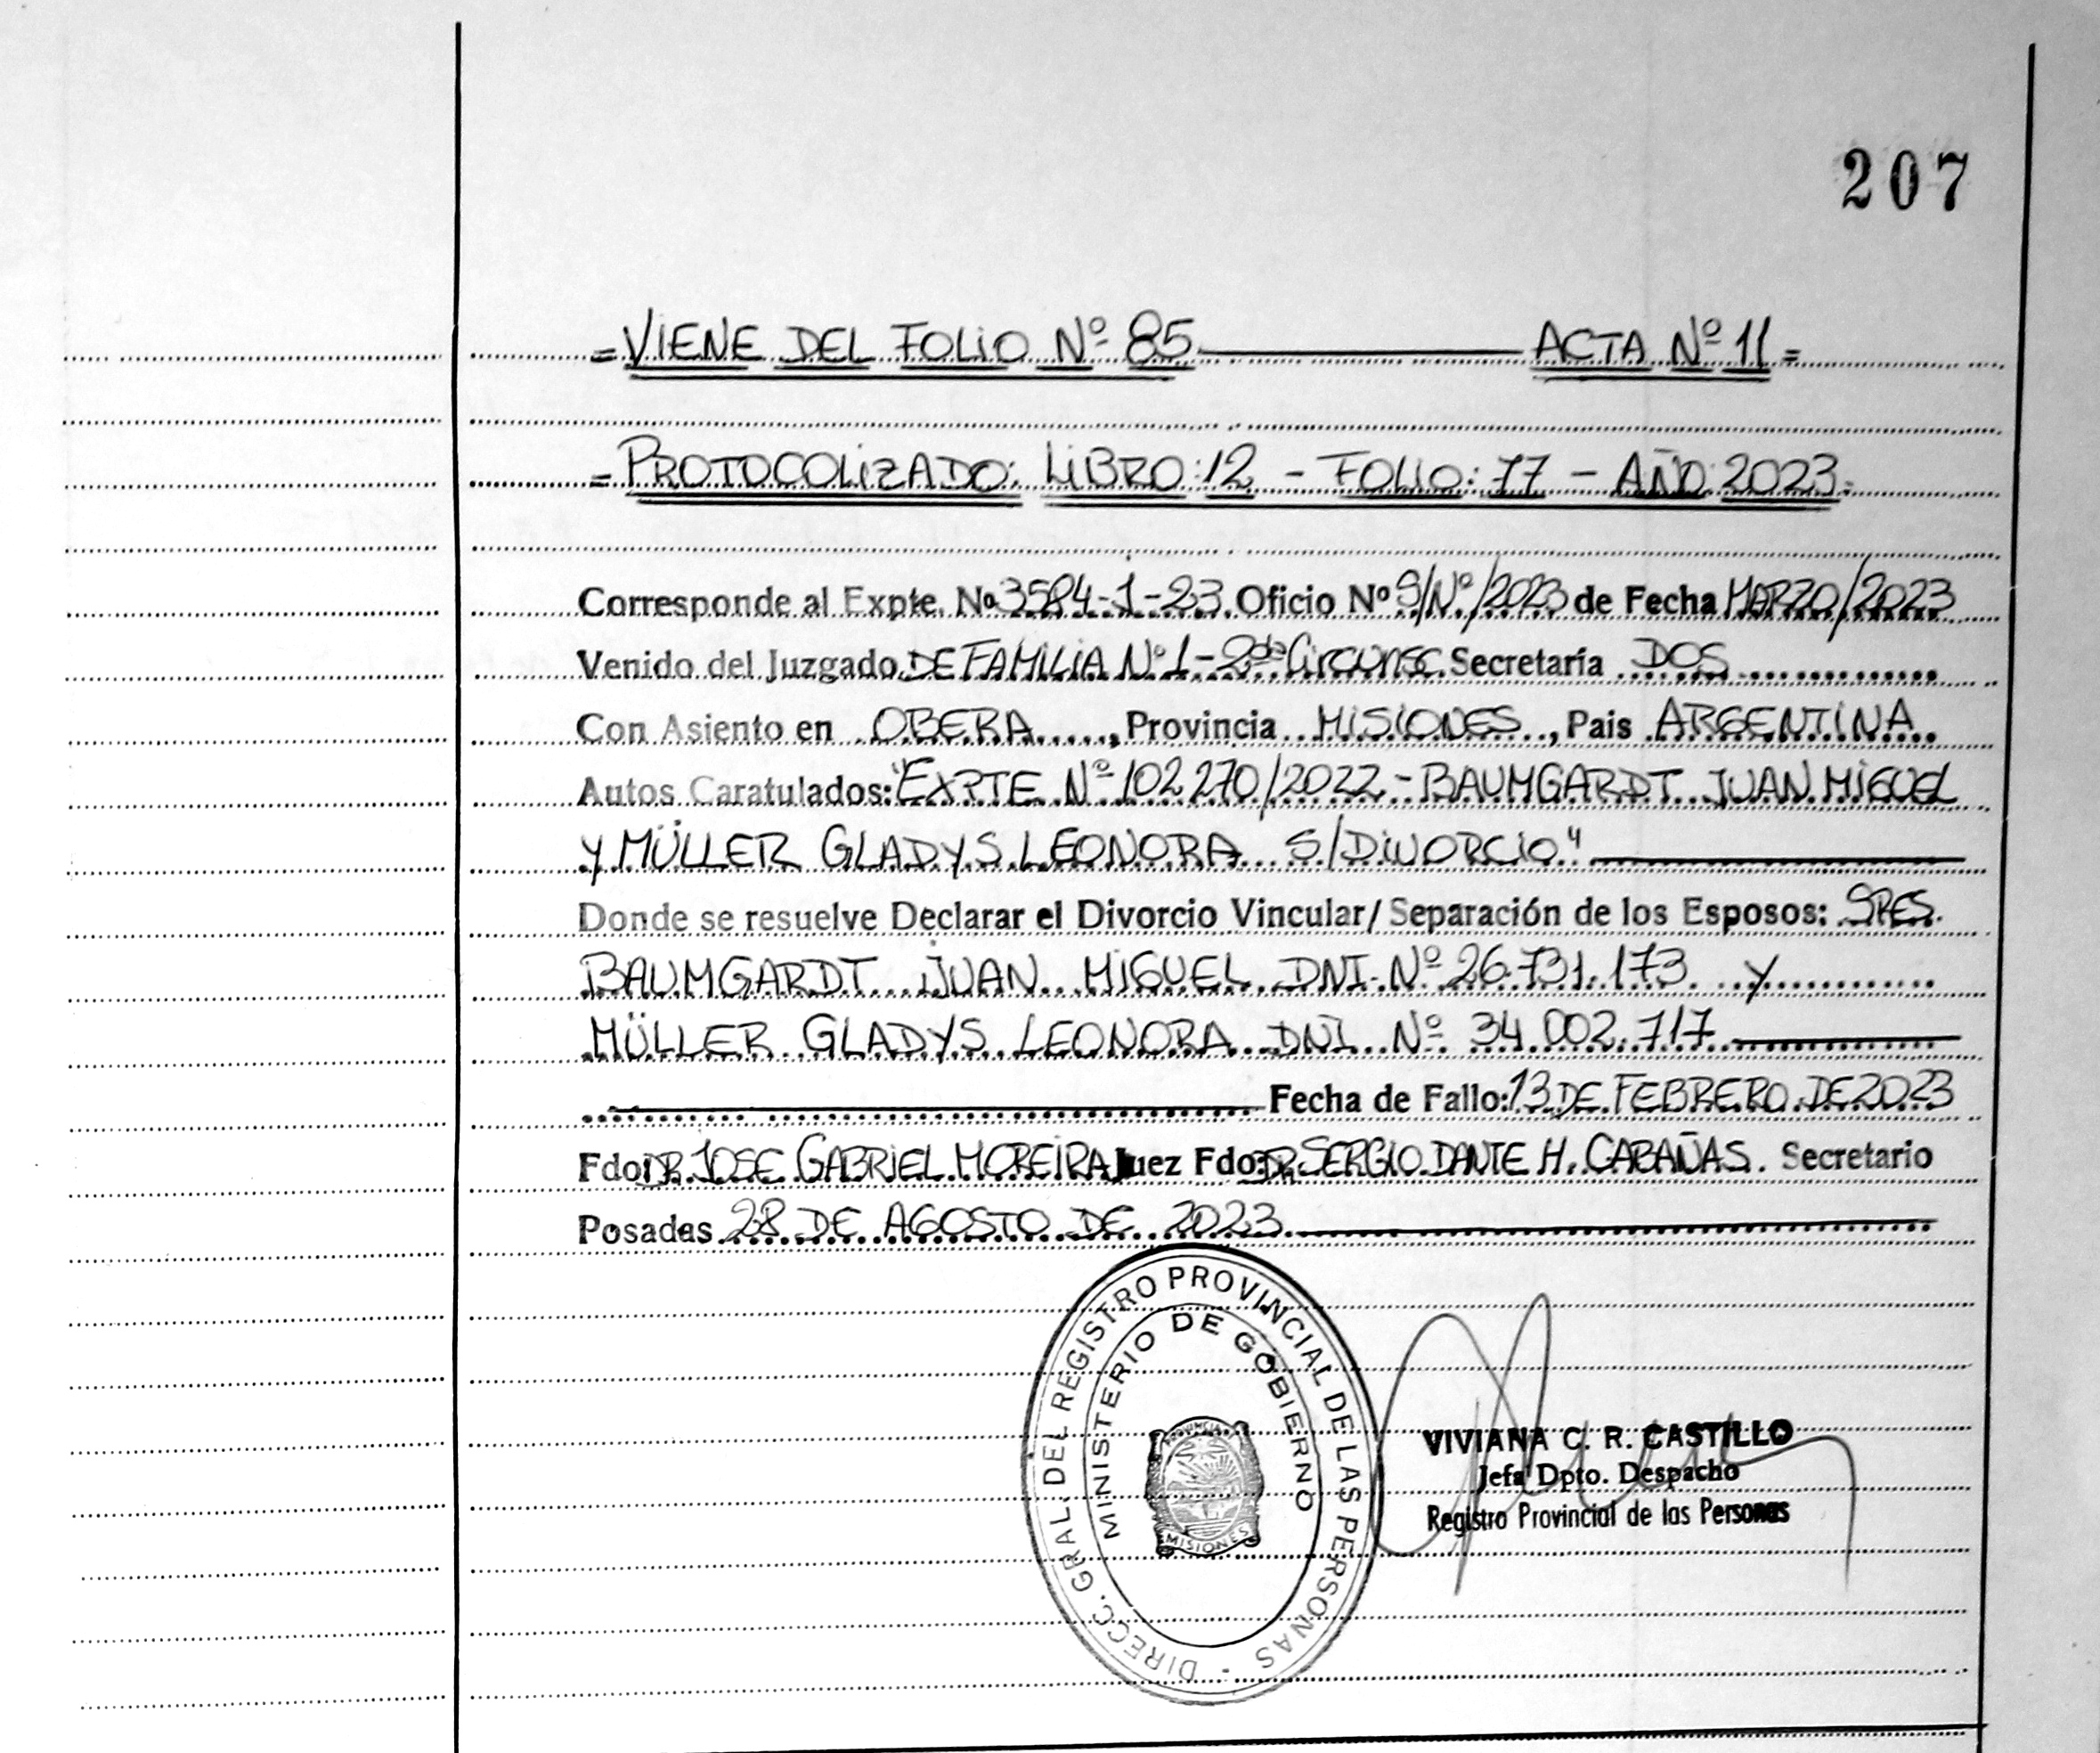 207
= VIENE DEL FOLIO Nº 85 ACTA Nº 11 =
= PROTOCOLIZADO: LIBRO: 12 - FOLIO: 77 - AÑO: 2023 =
Corresponde al Expte. Nº 3584-1-23 Oficio Nº S/Nº/2023 de Fecha MARZO/2023
Venido del Juzgado DE FAMILIA Nº 1 - 2da Circunsc. Secretaría DOS
Con Asiento en OBERA, Provincia MISIONES, Pais ARGENTINA
Autos Caratulados: "EXPTE Nº 102270/2022 - BAUMGARDT JUAN MIGUEL
Y MÜLLER GLADYS LEONORA S/DIVORCIO"
Donde se resuelve Declarar el Divorcio Vincular/ Separación de los Esposos: SRES.
BAUMGARDT JUAN MIGUEL DNI Nº 26.731.173 Y
MÜLLER GLADYS LEONORA DNI Nº 34.002.717
Fecha de Fallo: 13 DE FEBRERO DE 2023
Fdo: DR. JOSE GABRIEL MOREIRA Juez Fdo: DR. SERGIO DANTE H. CABAÑAS. Secretario
Posadas 28 DE AGOSTO DE 2023
DIRECC. GRAL. DEL REGISTRO PROVINCIAL DE LAS PERSONAS -
MINISTERIO DE GOBIERNO
PROVINCIA
MISIONES
VIVIANA C. R. CASTILLO
Jefa Dpto. Despacho
Registro Provincial de las Personas